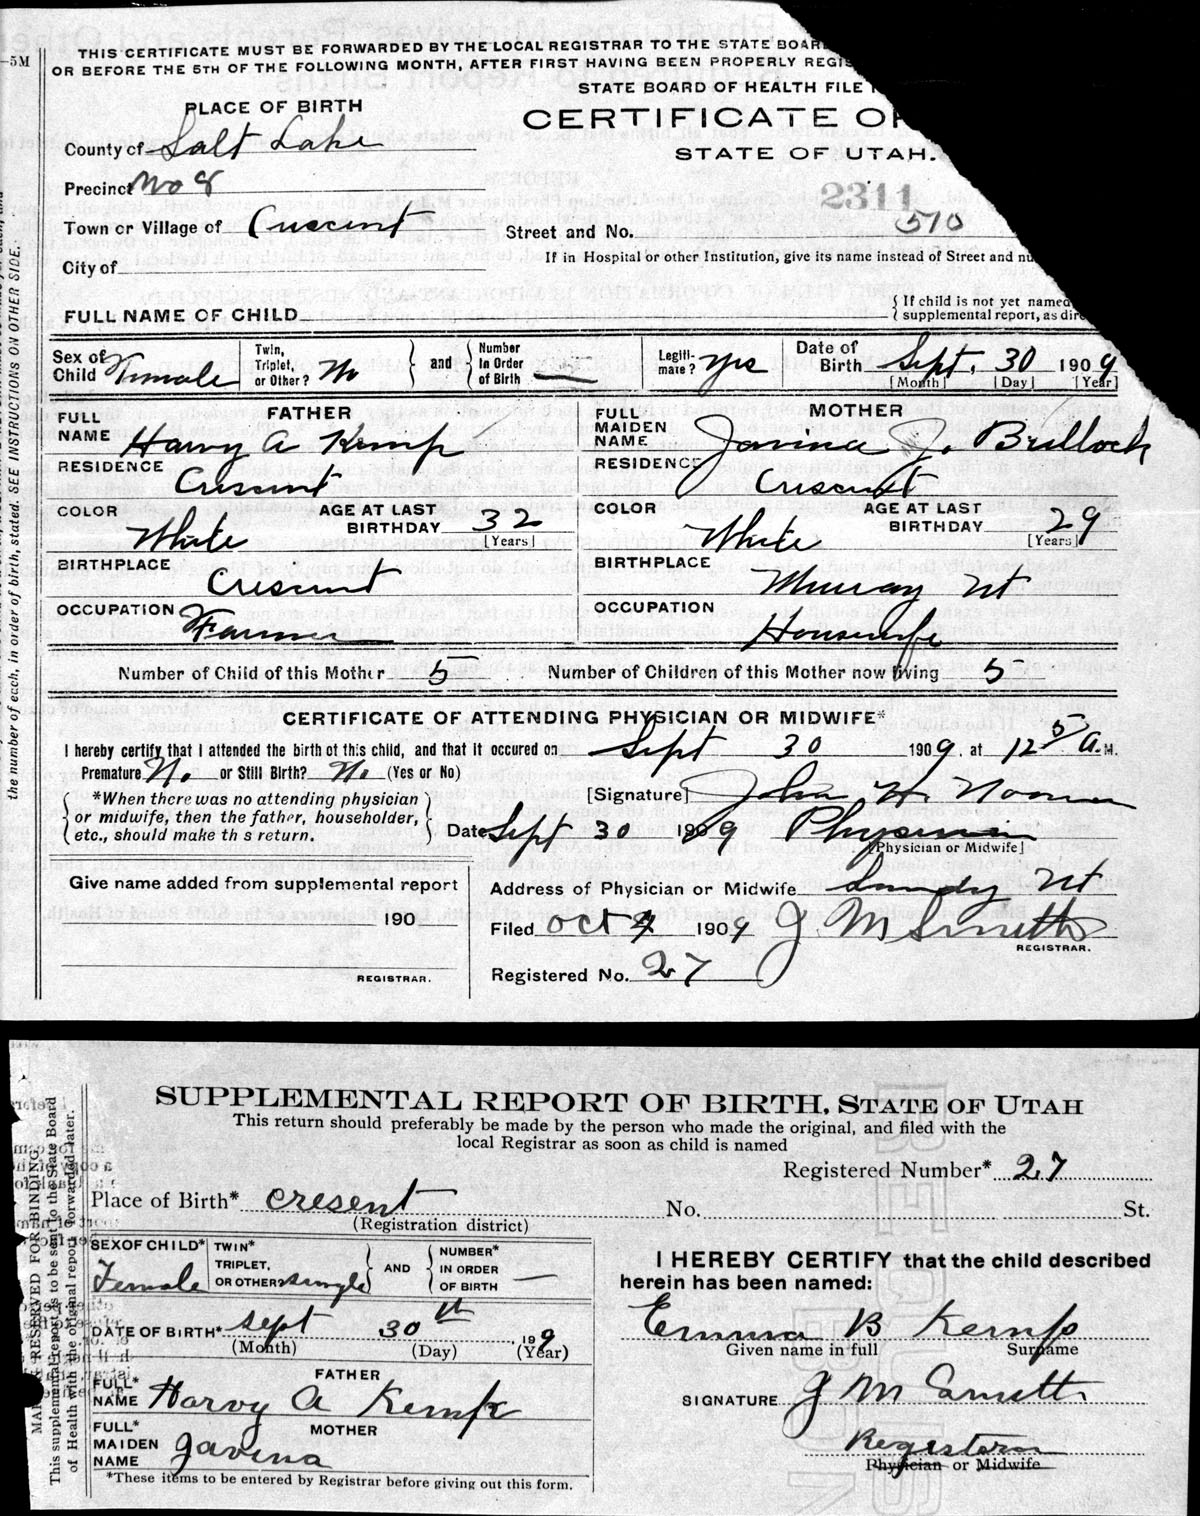 THIS CERTIFICATE MUST BE FORWARDED BY THE LOCAL REGISTRAR TO THE STATE BOAR
—5M
OR BEFORE THE 5TH OF THE FOLLOWING MONTH, AFTER FIRST HAVING BEEN PROPERLY REGIS
STATE BOARD OF HEALTH FILE
PLACE OF BIRTH
CERTIFICATE OF
County of Salt Lake
STATE OF UTAH.
Precinct No 8
2311
570
Town or Village of Crescent
Street and No.
City of
If in Hospital or other Institution, give its name instead of Street and nu
FULL NAME OF CHILD
If child is not yet named
supplemental report, as dire
Sex of Child Female
Twin, Triplet, or Other? No
and
Number In Order of Birth —
Legiti-mate? yes
Date of Birth Sept. 30 1909
[Month] [Day] [Year]
FATHER
FULL NAME Harvy A Kemp
RESIDENCE Crescent
COLOR White
AGE AT LAST BIRTHDAY 32
[Years]
BIRTHPLACE Crescent
OCCUPATION Farmer
MOTHER
FULL MAIDEN NAME Javina J. Bullock
RESIDENCE Crescent
COLOR White
AGE AT LAST BIRTHDAY 29
[Years]
BIRTHPLACE Murray Ut
OCCUPATION Housewife
Number of Child of this Mother 5
Number of Children of this Mother now living 5
CERTIFICATE OF ATTENDING PHYSICIAN OR MIDWIFE*
I hereby certify that I attended the birth ot this child, and that it occured on Sept 30 1909. at 12 5 A.M.
Premature No or Still Birth? No (Yes or No)
*When there was no attending physician
or midwife, then the father, householder,
etc., should make th s return.
[Signature] John H.
Date Sept 30 1909 Physician
[Physician or Midwife]
Give name added from supplemental report
190
REGISTRAR.
Address of Physician or Midwife Sandy Ut
Filed Oct 4 1909 J M Smith
REGISTRAR.
Registered No. 27
the number of each, in order of birth, stated. SEE INSTRUCTIONS ON OTHER SIDE.
SUPPLEMENTAL REPORT OF BIRTH, STATE OF UTAH
This return should preferably be made by the person who made the original, and filed with the
local Registrar as soon as child is named
Registered Number* 27
Place of Birth* Cresent No. St.
(Registration district)
SEX OF CHILD* Female
TWIN* TRIPLET, OR OTHER single
AND
NUMBER* IN ORDER OF BIRTH —
DATE OF BIRTH* Sept 30th 199
(Month) (Day) (Year)
FATHER
FULL* NAME Harvy A Kemp
MOTHER
FULL* MAIDEN NAME Javina
*These items to be entered by Registrar before giving out this form.
I HEREBY CERTIFY that the child described
herein has been named:
Emma B Kemp
Given name in full Surname
SIGNATURE J M Smith
Registerar
Physician or Midwife
RESERVED FOR BINDING.
This supplemental report is to be sent to the State Board
of Health with the original report if forwarded later.